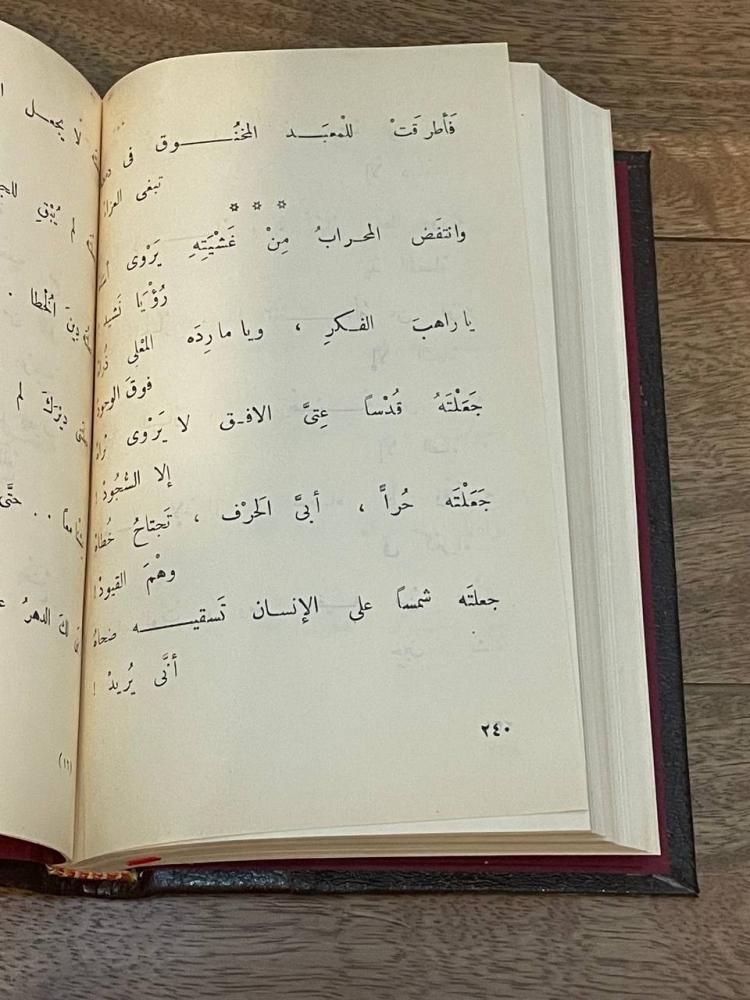 فَأطرقَتْ للْمعبَـــد المخنُـــوق فى
تبغى العزاء
* * *
وانتفَض المحرابُ مِنْ غَشْيَتِهِ يَرْوى
رُؤْيَا نَشيد
يا راهبَ الفـكرِ ، ويا ماردَه المعْلِى
فوقَ الوجود
جَعَلْتَهُ قُدْساً عِتىَّ الافـق لا يَرْوى
إلا السُّجُودْ !
جَعَلْتَه حُرًّا ، أبىَّ الحَرْف ، تَجتاحُ خُطاهْ
وهْمَ القيودْ !
جعلتَه شمساً على الإنسان تَسقيـــــه ضحاهُ
أنَّى يُريدْ !
٢٤٠
لا يجعـل
لم يُبْقِ
دِينَ الخُطا .
دِيْرَكَ لم
. . حتَّى
لكَ الدهرُ
(١٦)